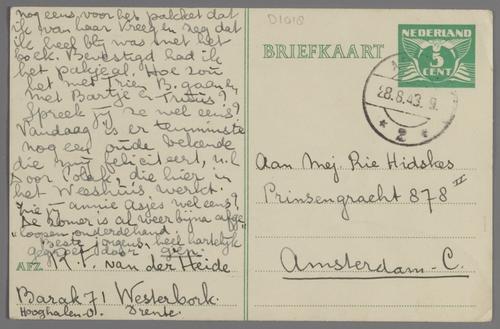 nog eens voor het pakket dat
ik van haar kreeg en zeg dat
ik heel blij was met het
boek. Bevestigd had ik
het pakje al. Hoe zou
het met Trien B. gaan en
met Bartje en Truus?
Spreek jij ze wel eens?
Vandaag is er tenminste
nog een oude bekende
die mij feliciteert, n.l.
die hier in
het Weeshuis werkt.
Zie U annie Asjes wel eens?
De zomer is al weer bijna afge-
loopen onderdehand.
Beste jongens, heel hartelijk
gegroet door
AFZ. R. v. van der Heide
Barak 71 Westerbork.
Hooghalen-O. Drente.
D1018
BRIEFKAART
NEDERLAND
5
CENT
28.8.43. 9.
2
Aan Mej. Rie Hidskes
Prinsengracht 878 III
Amsterdam-C.